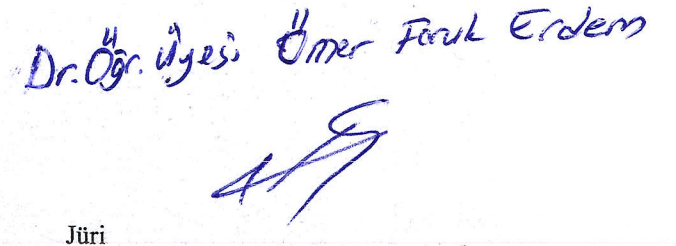 Dr. Öğr. Üyesi Ömer Faruk Erdem
Jüri